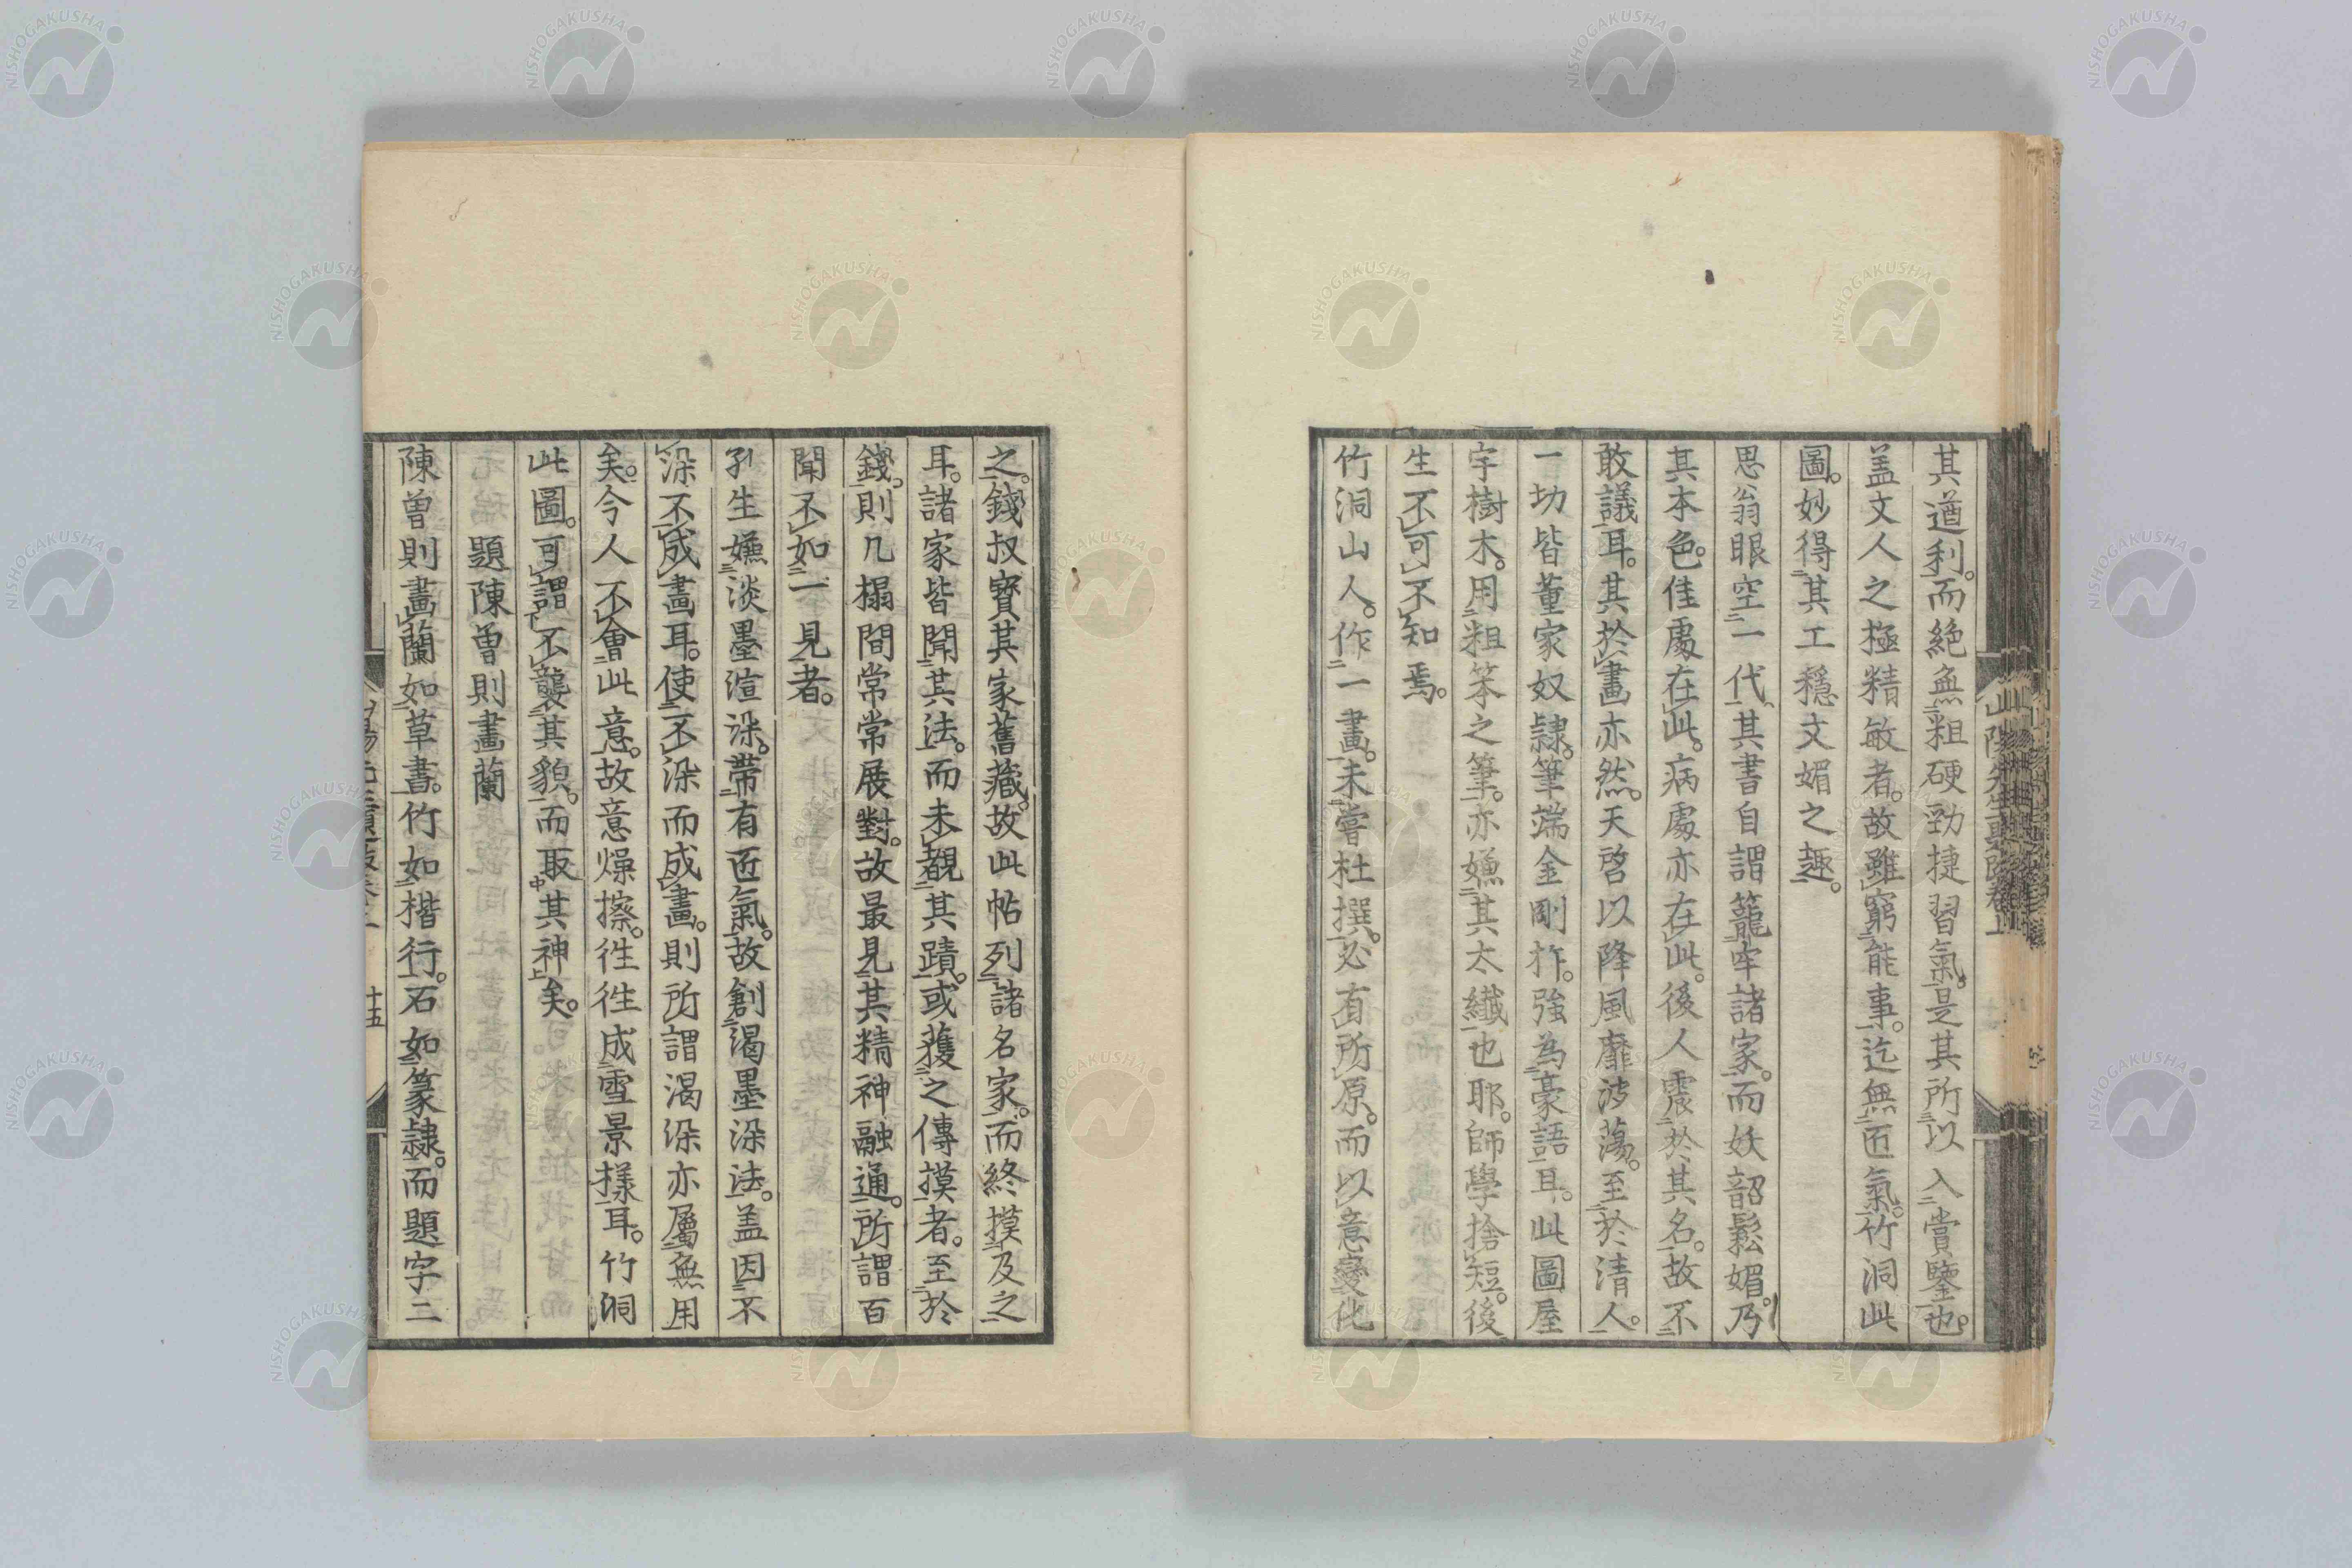 其遒利。而絶無粗硬勁捷習氣。是其所以入賞鑒也。
盖文人之極精敏者。故雖窮能事。迄無匠氣。竹洞此
圖。妙得其工穩文媚之趣。
思翁眼空一代、其書自謂籠牢諸家。而妖韶鬆媚。乃
其本色。佳處在此。病處亦在此。後人震於其名。故不
敢議耳。其於畫亦然。天啓以降風靡波蕩。至於清人。
一切皆董家奴隷。筆端金剛杵。強為豪語耳。此圖屋
宇樹木。用粗笨之筆。亦嫌其太纎也耶。師學捨短。後
生不可不知焉。
竹洞山人。作一畫。未嘗杜撰。必有所原。而以意變化
之。錢叔寶其家舊藏。故此帖列諸名家。而終摸及之
耳。諸家皆聞其法。而未覩其蹟。或獲之傳摸者。至於
錢。則几榻間常常展對。故最見其精神融通。所謂百
聞不如一見者。
孔生嫌淡墨渲染。帶有匠氣。故創渴墨染法。盖因不
染不成畫耳。使不染而成畫。則所謂渴染亦屬無用
矣。今人不會此意。故意燥擦。徃徃成雪景樣耳。竹洞
此圖。可謂不襲其貌。而取其神矣。
題陳曾則畫蘭
陳曾則畫蘭如草書。竹如楷行。石如篆隷。而題字二
山陽先生書後卷上
十五
NISHOGAKUSHA